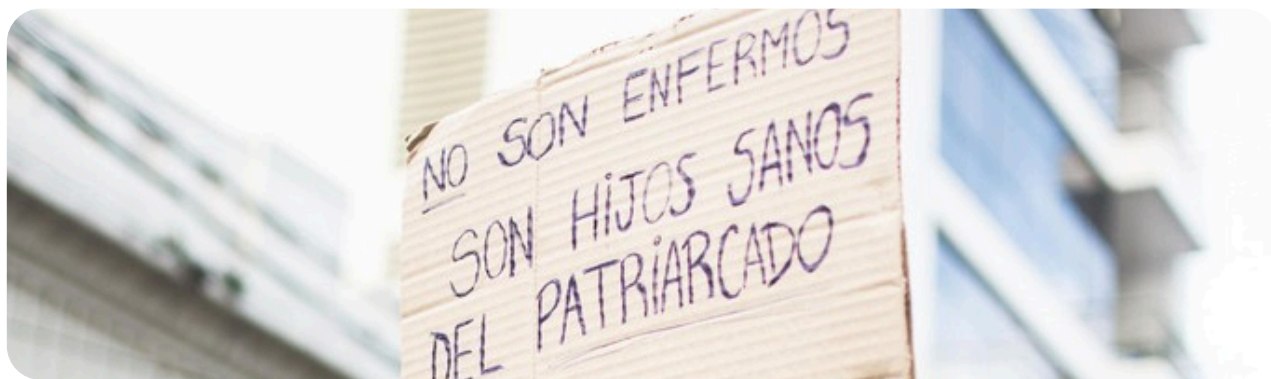 NO SON ENFERMOS
SON HiJOS SANOS
DEL PATRiARCADO